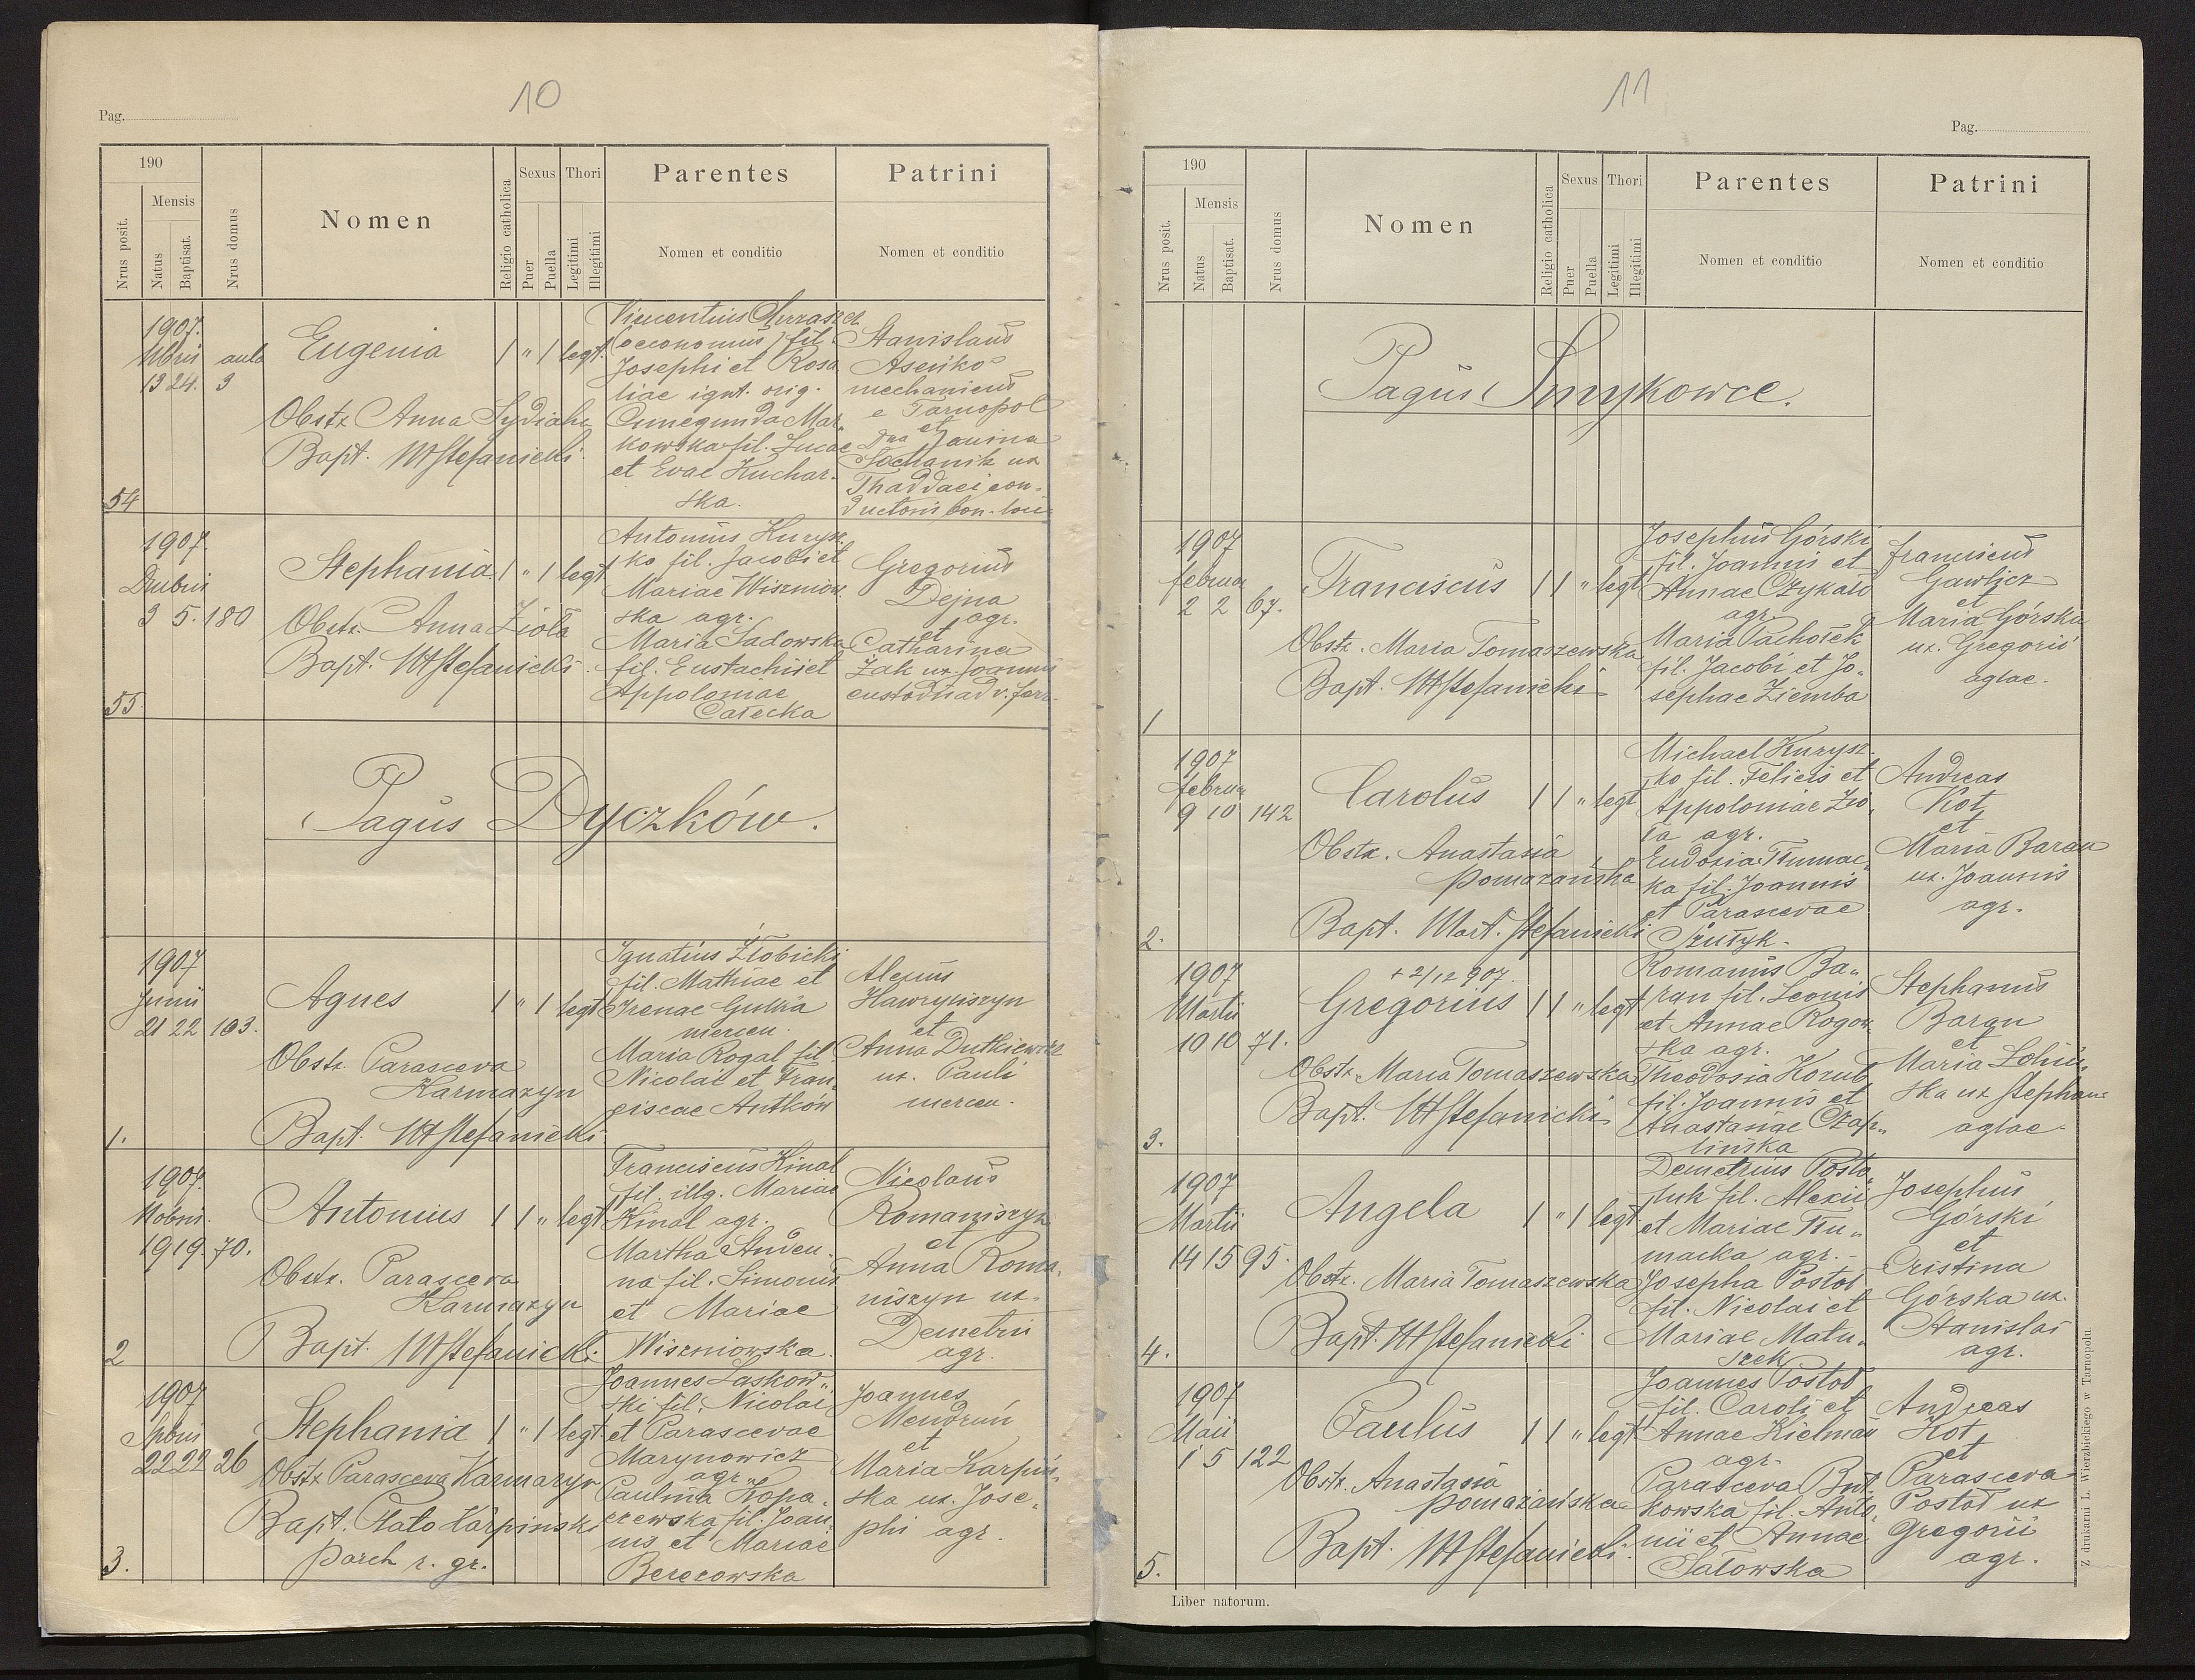 10
Pag.
190
Nrus posit.
Mensis
Natus
Baptisat.
Nrus domus
Nomen
Religio catholica
Sexus
Puer
Puella
Thori
Legitimi
Illegitimi
Parentes
Nomen et conditio
Patrini
Nomen et conditio
1907.
13 24. 3
54
Eugenia
1 " 1 legt.
Obstx Anna
Bapt. MStefanicki.
Vincentius
(oeconomus) fil.
Josephi et Rosa
liae ignt. orig.
Cunegunda Mar„
kowska fil. Lucae
et Evae Kuchar„
ska.
Stanislaus
mechanicus
e Tarnopol
et
Dna Janina
Sochanik ux
Thaddaei con„
ductoris bon. loci
1907
3 5. 180
55
Stephania
1 " 1 legt
Obstx. Anna Zioła
Bapt. MStefanicki.
Antonius Kurysz„
ko fil. Jacobi et
Mariae Wiszniow„
ska agr.
Maria Sadowska
fil. Eustachii et
Appoloniae
Całecka
Gregorius
Dejna
agr.
et
Catharina
Żak ux Joannis
custodis ad v. ferr.
Pagus Dyczków.
1907
Junii
21 22 103.
1.
Agnes
1 " 1 legt
Obstx. Parasceva
Karmazyn
Bapt. MStefanicki.
Ignatius Złobicki
fil. Mathiae et
Irenae
mercen.
Maria Rogal fil
Nicolai et Fran„
ciscae Antków
Alexius
Hawryliszyn
et
Anna Dutkiewicz
ux. Pauli
mercen.
1907.
Nobris.
19 19. 70.
2
Antonius
1 1 " legt
Obstx. Parasceva
Karmazyn
Bapt. MStefanicki.
Franciscus Kinal
fil. illg. Mariae
Kinal agr.
Martha
na fil. Simonis
et Mariae
Wiszniowska.
Nicolaus
Romaniszyn
et
Anna Roma„
niszyn ux.
Demetrii
agr.
1907
22 22 26
3.
Stephania
1 " 1 legt
Obstx Parasceva Karmazyn
Bapt. Plato Karpinski
parch r. gr.
Joannes Laskow„
ski fil. Nicolai
et Parascevae
Marynowicz
agr.
Paulina Kopa„
czewska fil. Joan„
nis et Mariae
Berezowska
Joannes
Mendruń
et
Maria Karpiń„
ska ux. Jose„
phi agr.
11
Pag.
190
Nrus posit.
Mensis
Natus
Baptisat.
Nrus domus
Nomen
Religio catholica
Sexus
Puer
Puella
Thori
Legitimi
Illegitimi
Parentes
Nomen et conditio
Patrini
Nomen et conditio
Pagus Smykowce.
1907
februar
2 2 67.
1
Franciscus
1 1 " legt
Obstx. Maria Tomaszewska
Bapt. MStefanicki
Josephus Górski
fil. Joannis et
Annae Czykało
agr.
Maria Pachołek
fil. Jacobi et Jo„
sephae Ziemba
Franciscus
Gawlicz
et
Maria Górska
ux. Gregorii
aglae.
1907
februar
9 10 142
2.
Carolus
1 1 " legt
Obstx. Anastasia
Pomazańska
Bapt. Mart. Stefanicki
Michael Kurysz„
ko fil. Felicis et
Appoloniae Zio„
ła agr.
Eudoxia Tłumac„
ka fil. Joannis
et Parascevae
Andreas
Kot
et
Maria Baran
ux. Joannis
agr.
1907
Martii
10 10 71.
3.
+ 2/12 907.
Gregorius
1 1 " legt
Obstx. Maria Tomaszewska
Bapt. MStefanicki
Romanus Ba„
ran fil. Leonis
et Annae Rogow„
ska agr.
Theodosia Kozub
fil. Joannis et
Anastasiae Czap„
lińska
Stephanus
Baran
et
Maria
ska ux Stephan
aglae
1907
Martii
14 15 95.
4.
Angela
1 " 1 legt
Obstx. Maria Tomaszewska
Bapt. MStefanicki
Demetrius Posto„
luk fil. Alexii
et Mariae Tłu„
macka agr.
Josepha Postoł
fil. Nicolai et
Mariae Matu„
szek
Josephus
Górski
et
Cristina
Górska ux.
Stanislai
agr.
1907
Maii
1 5 122
5.
Paulus
1 1 " legt
Obstx. Anastasia
Pomazańska
Bapt. MStefanicki.
Joannes Postoł
fil. Caroli et
Annae Kielman
agr.
Parasceva But„
kowska fil. Anto„
nii et Annae
Sałowska
Andreas
Kot
et
Parasceva
Postoł ux
Gregorii
agr.
Liber natorum.
Z drukarni L. Wierzbickiego w Tarnopolu.